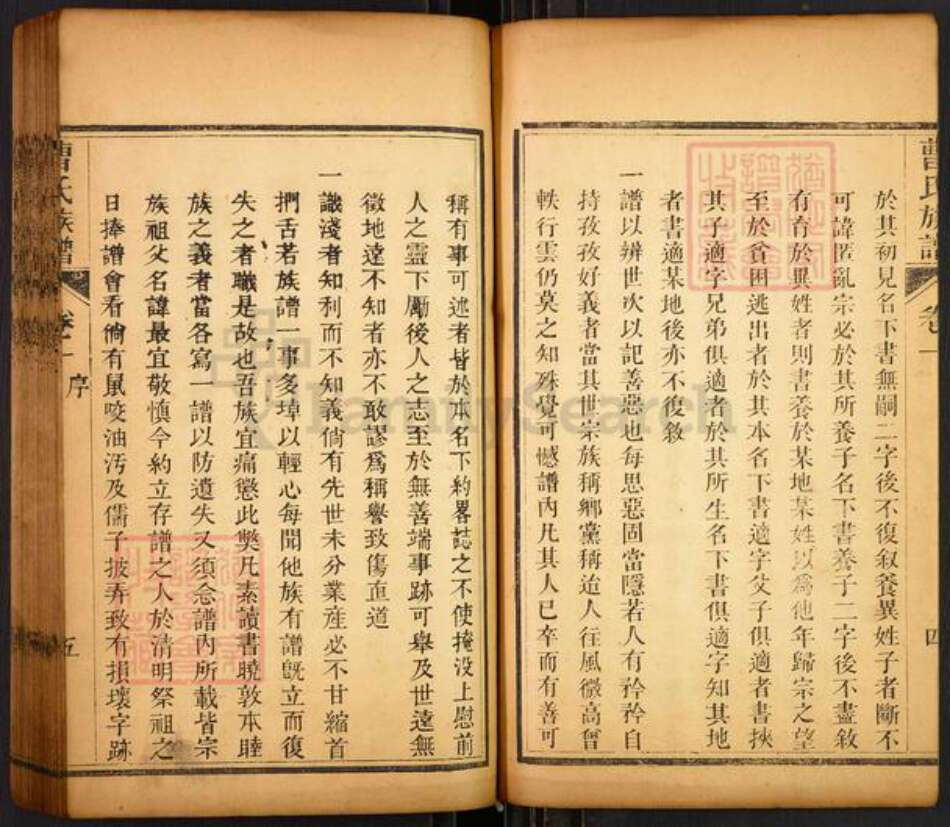 曹氏族譜 卷一 四
於其初見名下書無嗣二字後不復敘養異姓子者斷不
可諱匿亂宗必於其所養子名下書養子二字後不盡敘
有育於異姓者則書養於某地某姓以為他年歸宗之望
至於貧困逃出者於其本名下書適字父子俱適者書挾
其子適字兄弟俱適者於其所生名下書俱適字知其地
者書適某地後亦不復敘
一譜以辨世次以記善惡也每思惡固當隱若人有矜矜自
持孜孜好義者當其世宗族稱鄉黨稱迨人往風微高曾
軼行雲仍莫之知殊覺可憾譜內凡其人已卒而有善可
稱有事可述者皆於本名下約畧誌之不使掩没上慰前
人之靈下勵後人之志至於無善端事跡可舉及世遠無
徵地遠不知者亦不敢謬為稱譽致傷直道
一識淺者知利而不知義倘有先世未分業產必不甘縮首
捫舌若族譜一事多埠以輕心每聞他族有譜旣立而復
失之者職是故也吾族宜痛懲此獘凡素讀書曉敦本睦
族之義者當各寫一譜以防遺失又須念譜內所載皆宗
族祖父名諱最宜敬慎今約立存譜之人於清明祭祖之
日捧譜會看倘有鼠咬油汚及儒子披弄致有損壞字跡
曹氏族譜 卷一 序 五
FamilySearch